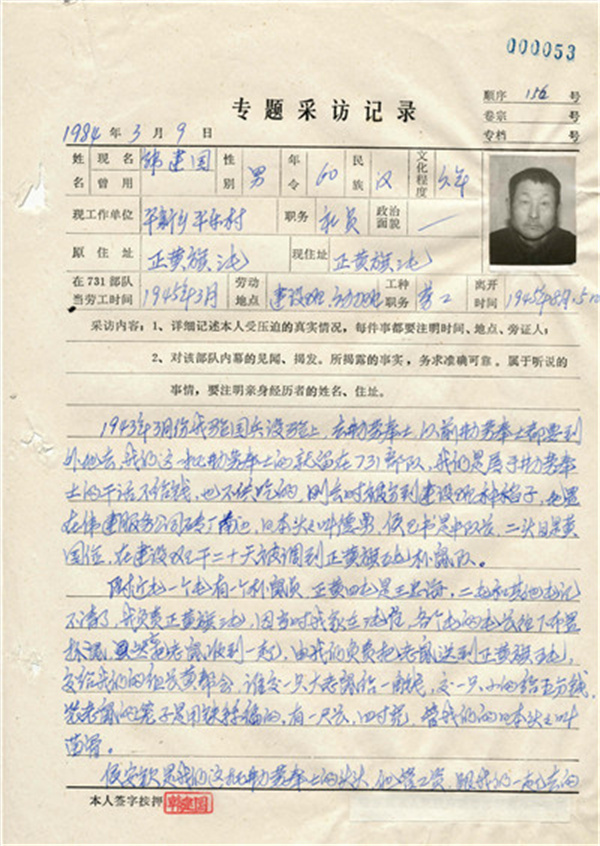 000053
顺序 156 号
专题采访记录
卷宗 号
1984 年 3 月 9 日
专档 号
姓名 现名 韩建国 性别 男 年令 60 民族 汉 文化程度 六年
曾用
现工作单位 平新乡平乐村 职务 社员 政治面貌 —
原住址 正黄旗二屯 现住址 正黄旗二屯
在731部队当劳工时间 1945年3月 劳动地点 建设班 劳动班 工种职务 劳工 离开时间 1945年8月
采访内容:1、详细记述本人受压迫的真实情况,每件事都要注明时间、地点、旁证人;
2、对该部队内幕的见闻、揭发。所揭露的事实,务求准确可靠。属于听说的
事情,要注明亲身经历者的姓名、住址。
1943年3月份我验国兵没验上,去勤劳奉士,以前勤劳奉士都要到
外地去,我们这一批勤劳奉士的就留在731部队,我们是属于勤劳奉
士的干活不给钱,也不供吃的,刚去时被分到建设班种格子,地点
在伟建服务公司砖厂南边,日本头叫
国位,在建设班干二十天被调到正黄旗五屯捕鼠队。
附近一个屯有一个捕鼠员,正黄四屯是王忠海,二屯和其他屯记
不清了,我负责正黄旗二屯,因当时我家在二屯住,各个屯的屯长往下布置
老鼠收到一起,由我们负责把老鼠送到正黄旗五屯,
交给我们的组长黄都会,谁交一只大老鼠给一角钱,交一只小的给五分钱,
装老鼠的笼子是用铁丝编的,有一尺长,四寸宽,管我们的日本头叫
苗滑。
是我们这批勤劳奉士的头头,他管工资,跟我们一起去的
本人签字按押 韩建国